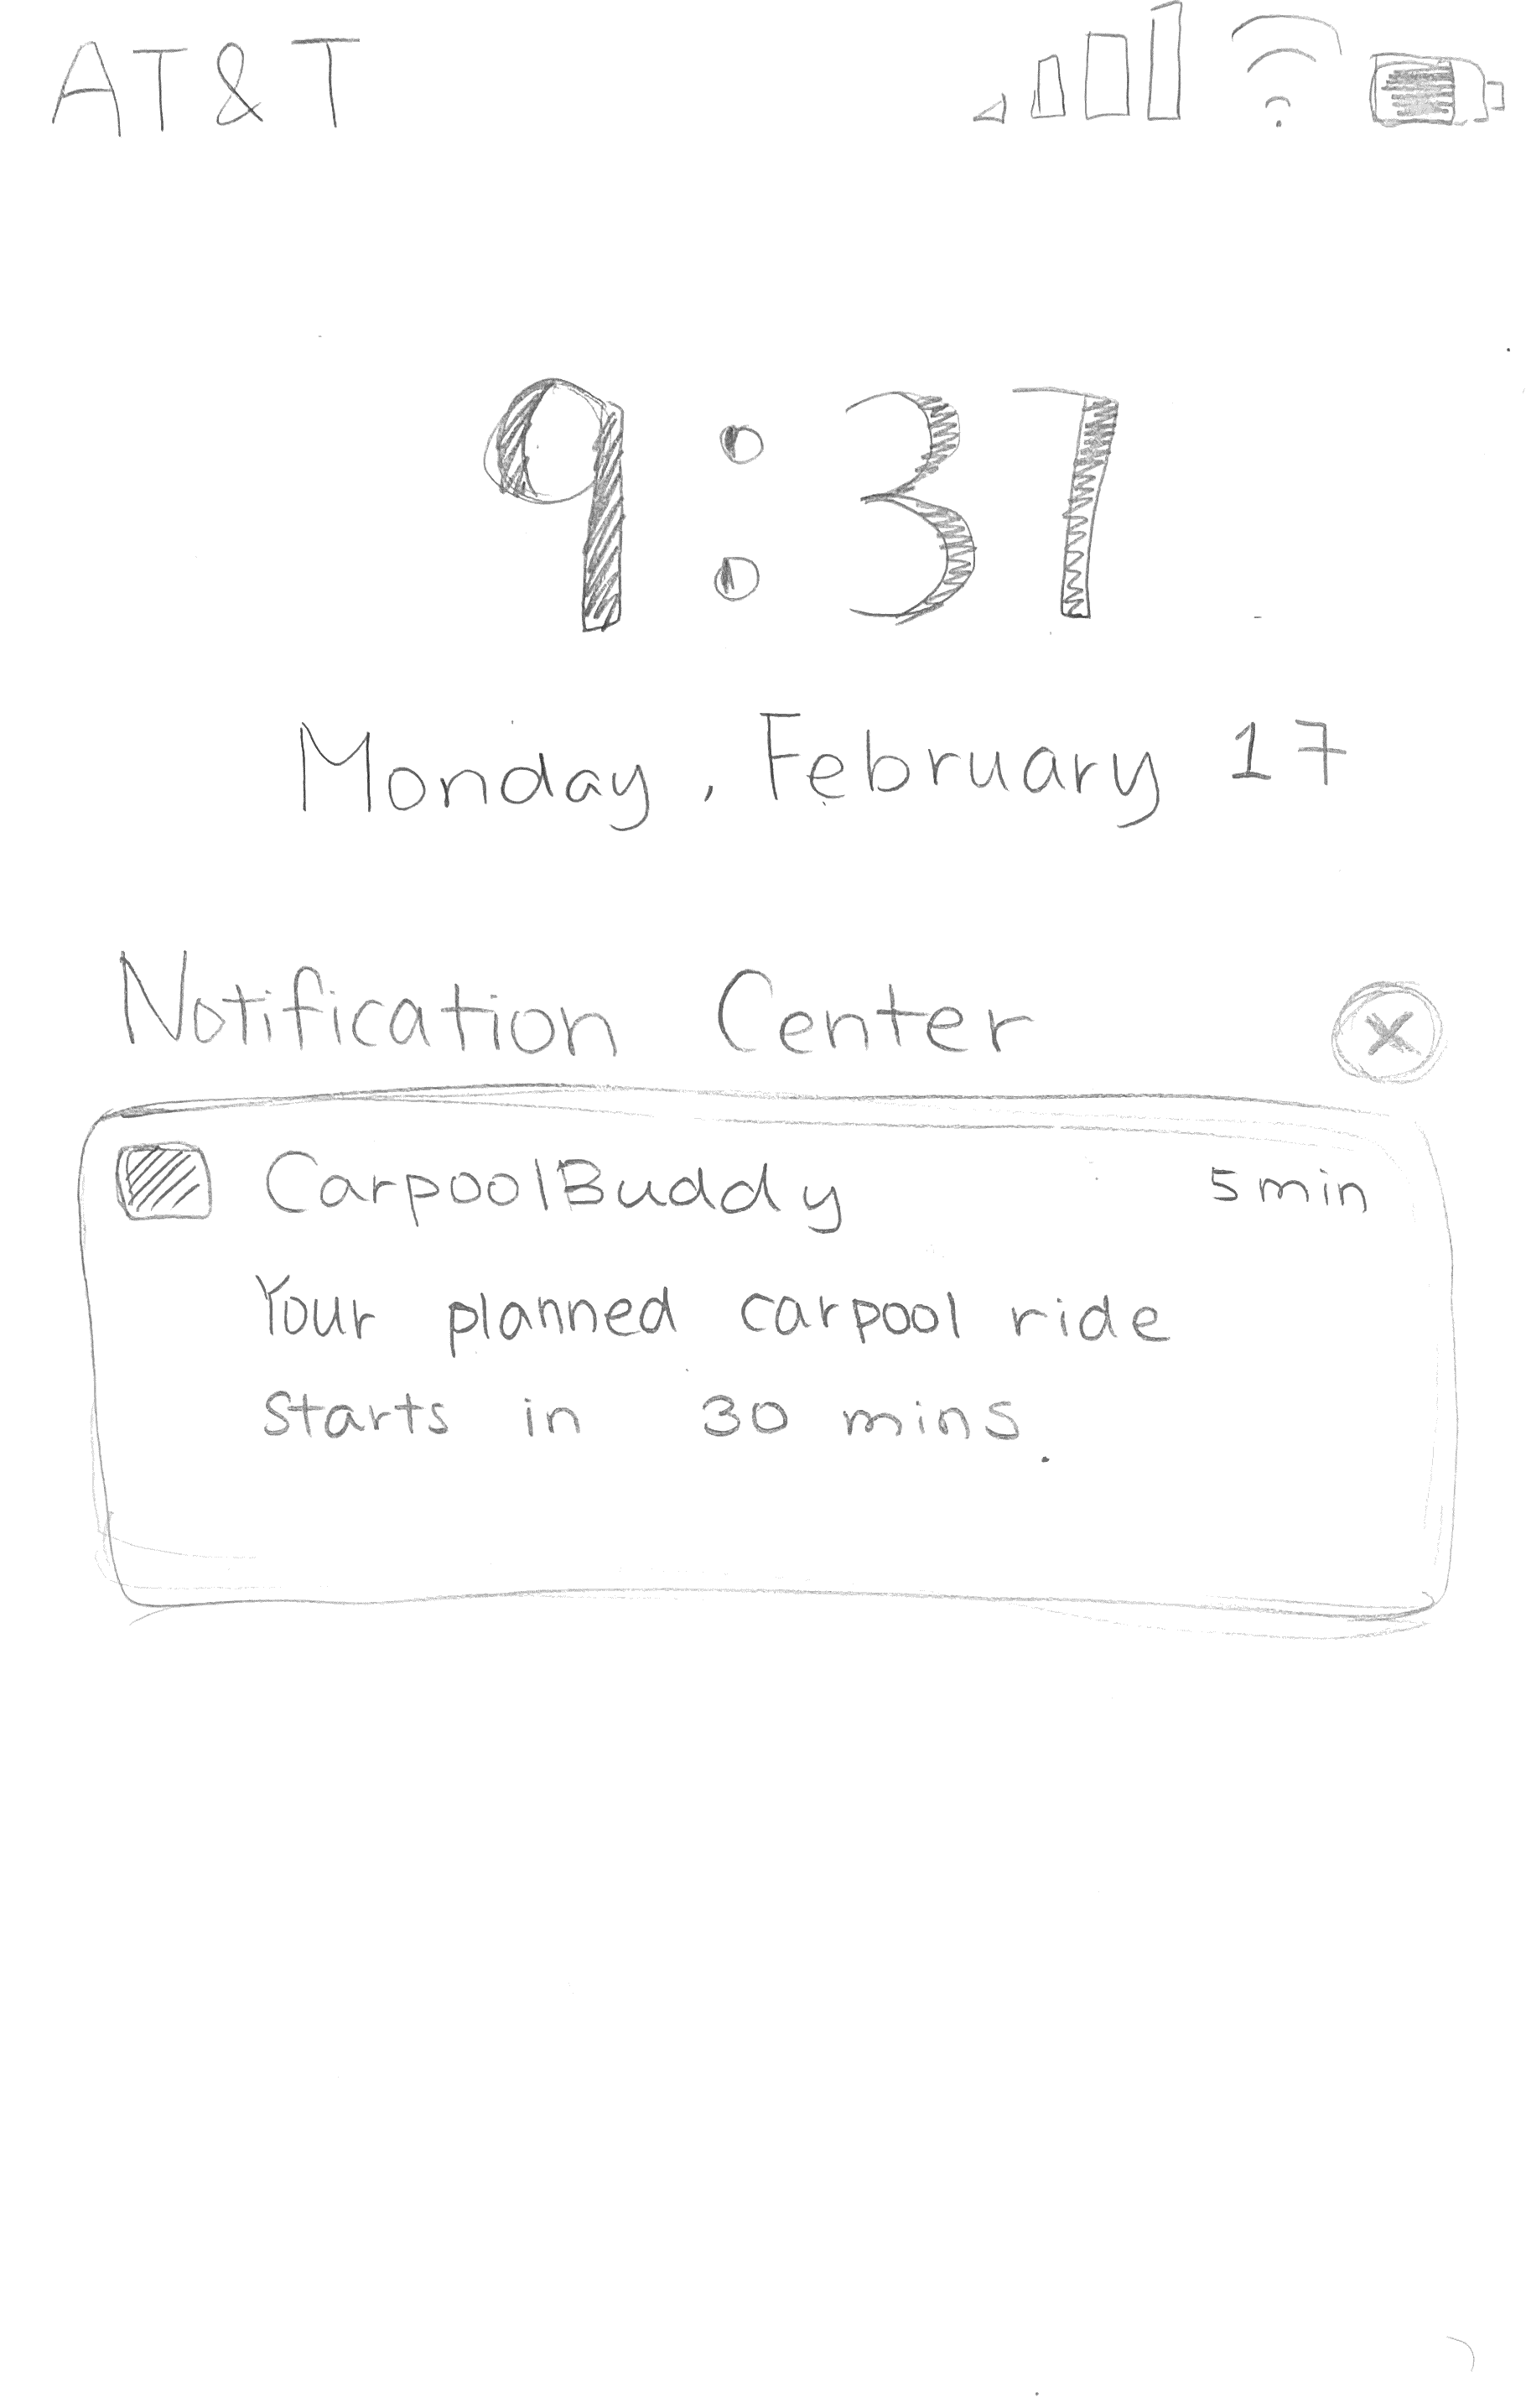 AT&T
9:37
Monday, February 17
Notification Center
CarpoolBuddy 5 min
Your planned carpool ride
starts in 30 mins.